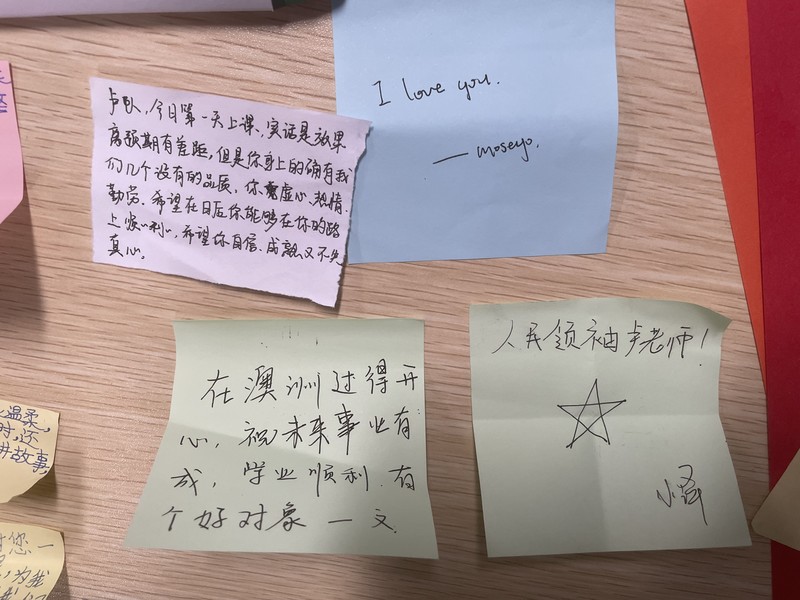 卢队，今日第一天上课，实话是效果
离预期有差距，但是你身上的确有我
们几个没有的品质，你虚心、热情、
勤劳。希望在日后你能够在你的路
上顺利，希望你自信、成熟又不失
真心。
I love you.
— moseyo.
在澳洲过得开
心，祝未来事业有
成，学业顺利.有
个好对象 一文
人民领袖卢老师！
温柔，
时，还
讲故事.
您一
，为我